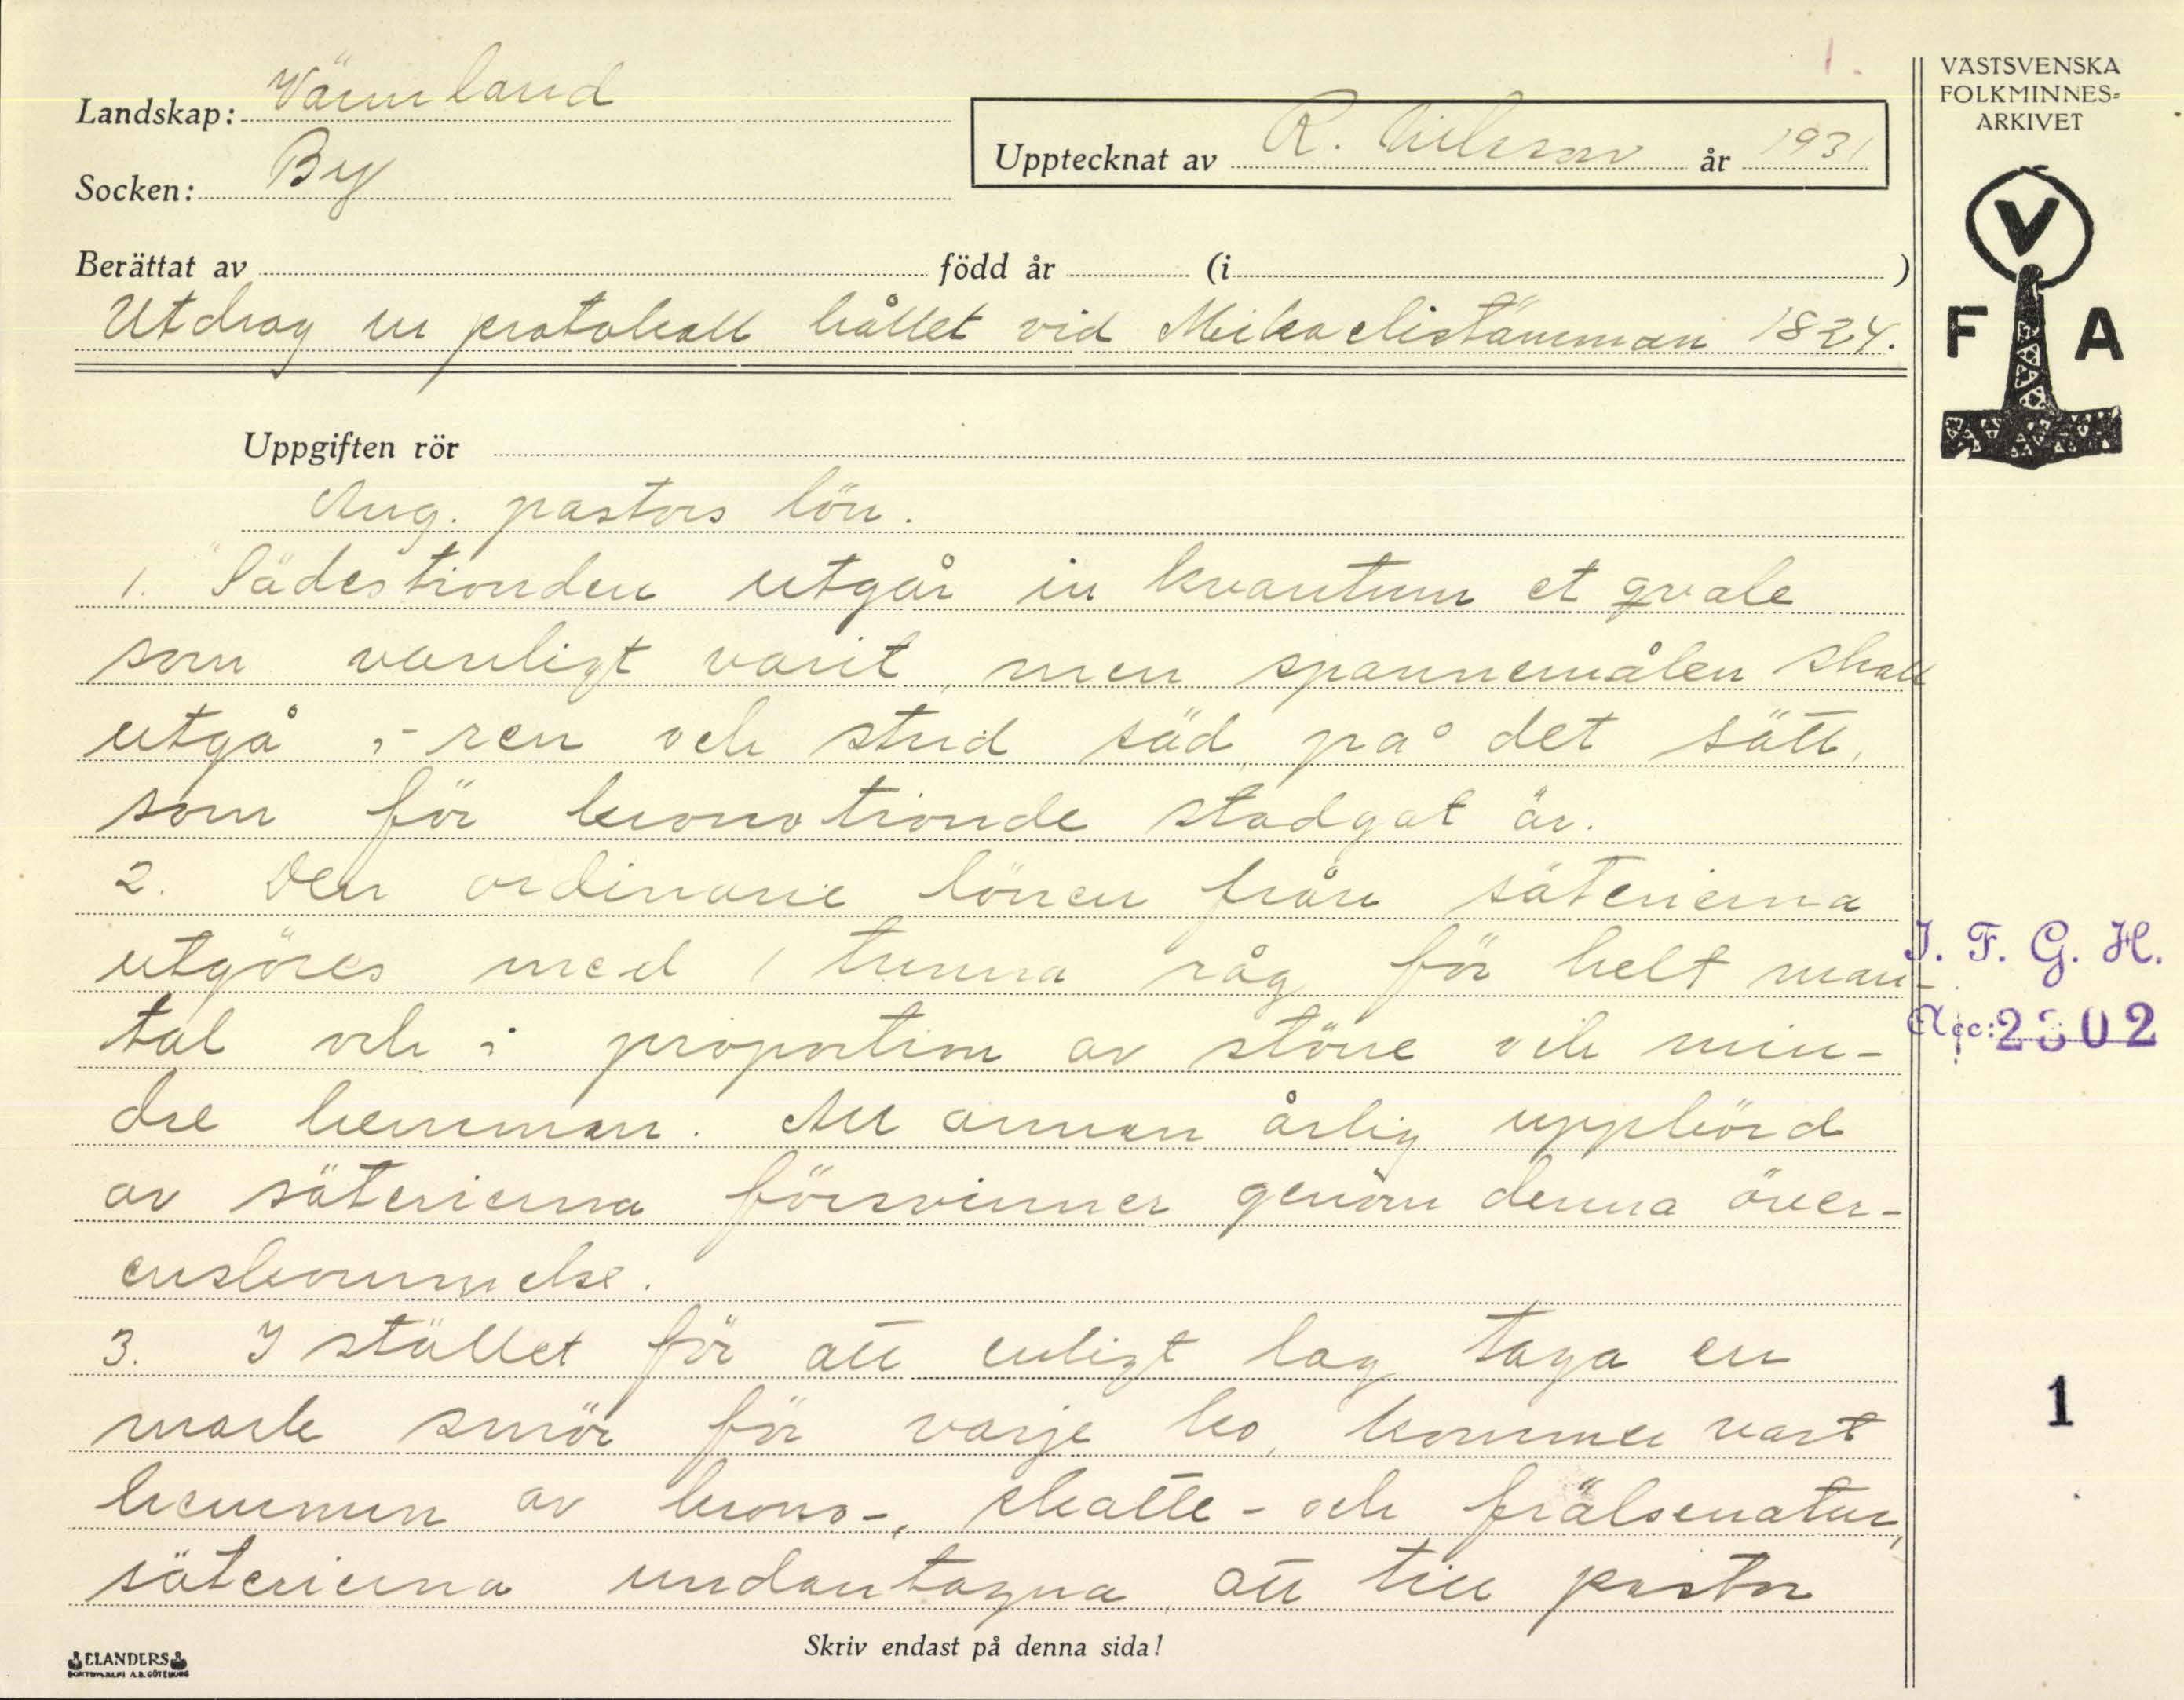 1.
VÄSTSVENSKA
FOLKMINNES-
ARKIVET
Landskap: Värmland
Upptecknat av R. Nilsson år 1931
Socken: By
Berättat av född år (i )
Utdrag ur protokoll hållet vid Mikaelistämman 1824.
V
F A
Uppgiften rör
Ang. pastors lön.
1. "Sädestionden utgår in kvantum et qvale
som vanligt varit, men spannemålen skall
utgå i ren och strid säd på det sätt,
som för kronotionde stadgat är.
2. Den ordinarie lönen från säterierna
utgöres med 1 tunna råg för helt man-
tal och i proportion av större och min-
dre hemman. All annan årlig uppbörd
av säterierna försvinner genom denna över-
enskommelse.
3. I stället för att enligt lag taga en
mark smör för varje ko, kommer vart
hemman av krono-, skatte- och frälsenatur,
säterierna undantagna, att till pastor
I. F. G. H.
Acc: 2302
1
Skriv endast på denna sida!
ELANDERS
BOKTRYCKERI A.B. GÖTEBORG